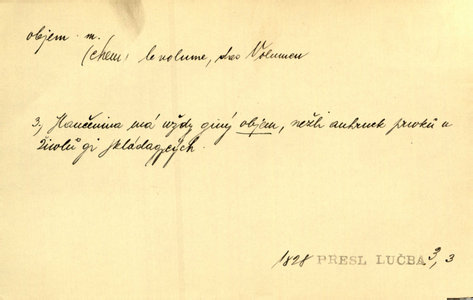 objem m.
(chem) le volume, das Volumen
3., Haučenina má wždy giný objem, nežli autruck prwků a
žiwlů gi skládagjcých.
1828 PRESL LUČBA 3, 3